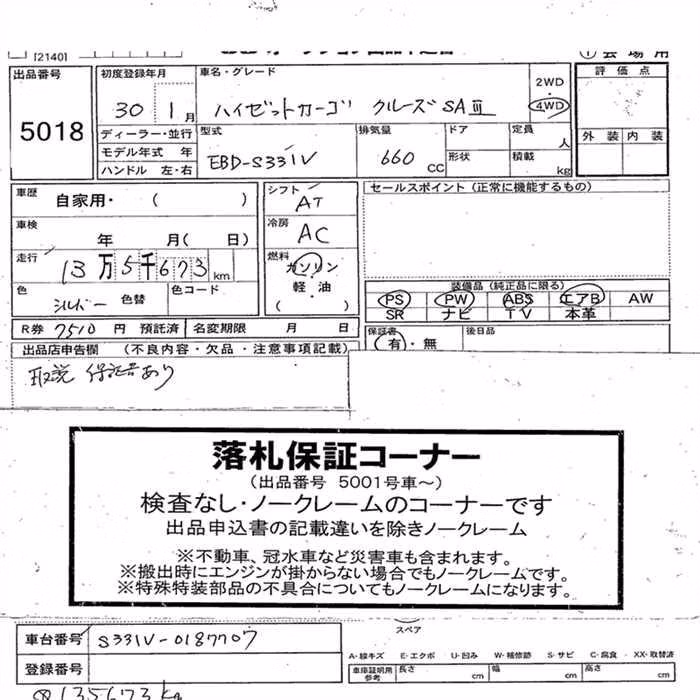 [2140]
① 会場用
出品番号
5018
初度登録年月
30 1 月
車名・グレード
ハイゼットカーゴ クルーズSAⅢ
2WD
・
4WD
評価点
外装 内装
ディーラー・並行
モデル年式 年
ハンドル 左・右
型式
EBD-S331V
排気量
660 CC
ドア
形状
定員
人
積載
kg
車歴
自家用・ ( )
車検
年 月( 日)
走行
13万5千673km
色
シルバー
色替
色コード
シフト
AT
冷房
AC
燃料
ガソリン
・
軽油
( )
セールスポイント (正常に機能するもの)
装備品 (純正品に限る)
PS PW ABS エアB AW
SR ナビ TV 本革
R券 7510 円 預託済
名変期限 月 日
保証書
有・無
後日品
出品店申告欄 (不良内容・欠品・注意事項記載)
取説 保証書あり
落札保証コーナー
(出品番号 5001号車～)
検査なし・ノークレームのコーナーです
出品申込書の記載違いを除きノークレーム
※不動車、冠水車など災害車も含まれます。
※搬出時にエンジンが掛からない場合でもノークレームです。
※特殊特装部品の不具合についてもノークレームになります。
車台番号 S331V-0187707
登録番号
スペア
A-線キズ E-エクボ U-凹み W-補修跡 S-サビ C-腐食 XX-取替済
車庫証明用
参考
長さ cm 幅 cm 高さ cm
135673km